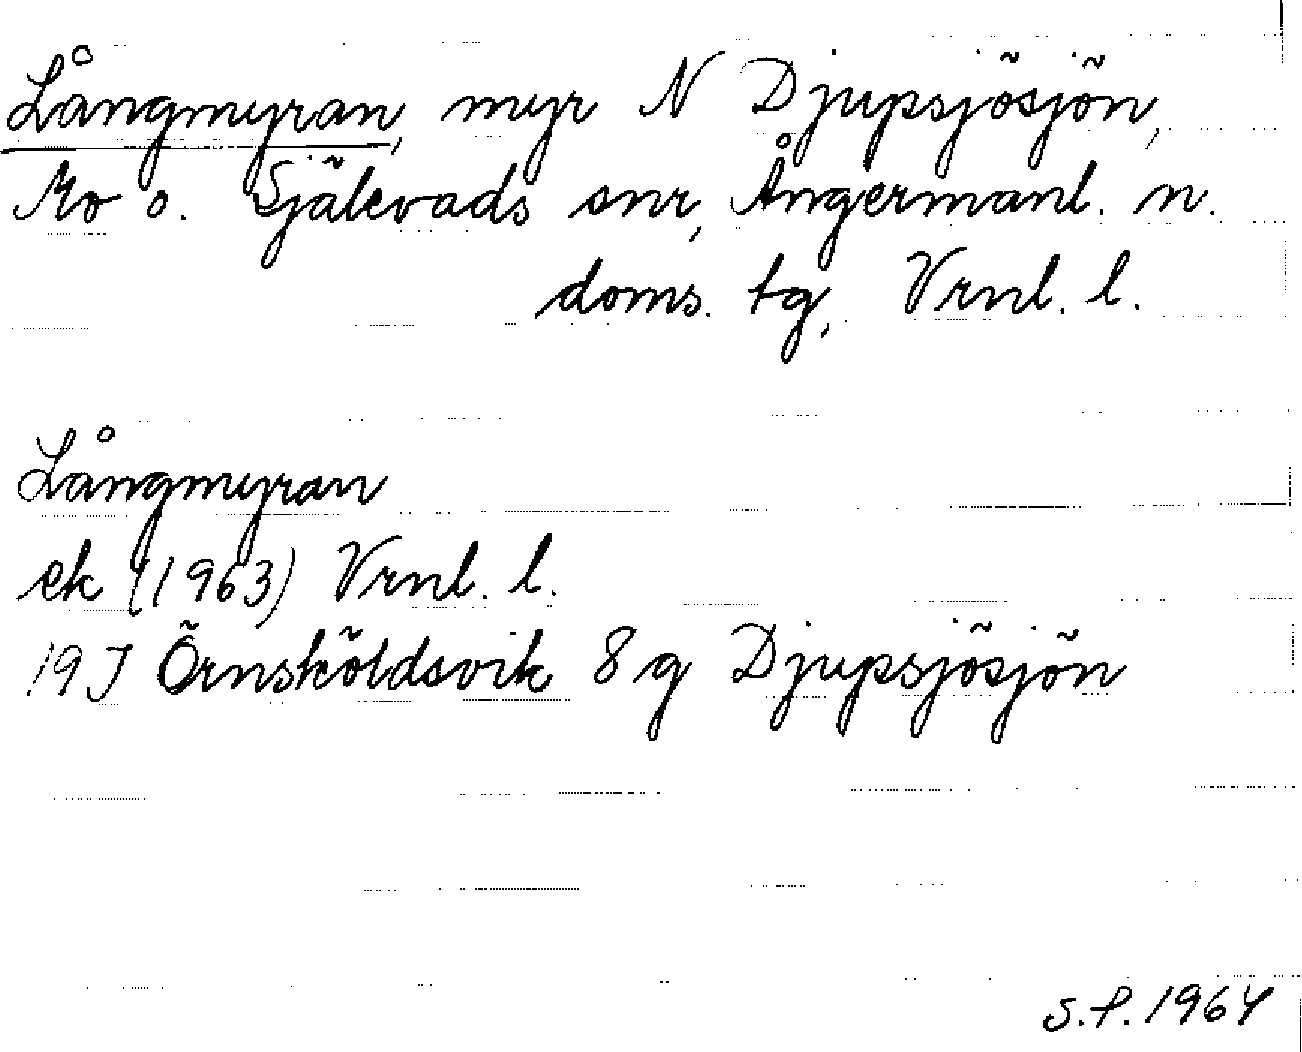 Långmyran, myr N Djupsjösjön,
Mo o. Själevads snr, Ångermanl. n.
doms. tg, Vrnl. l.
Långmyran
ek (1963) Vrnl. l.
19J Örnsköldsvik 8 g Djupsjösjön
S.P. 1964